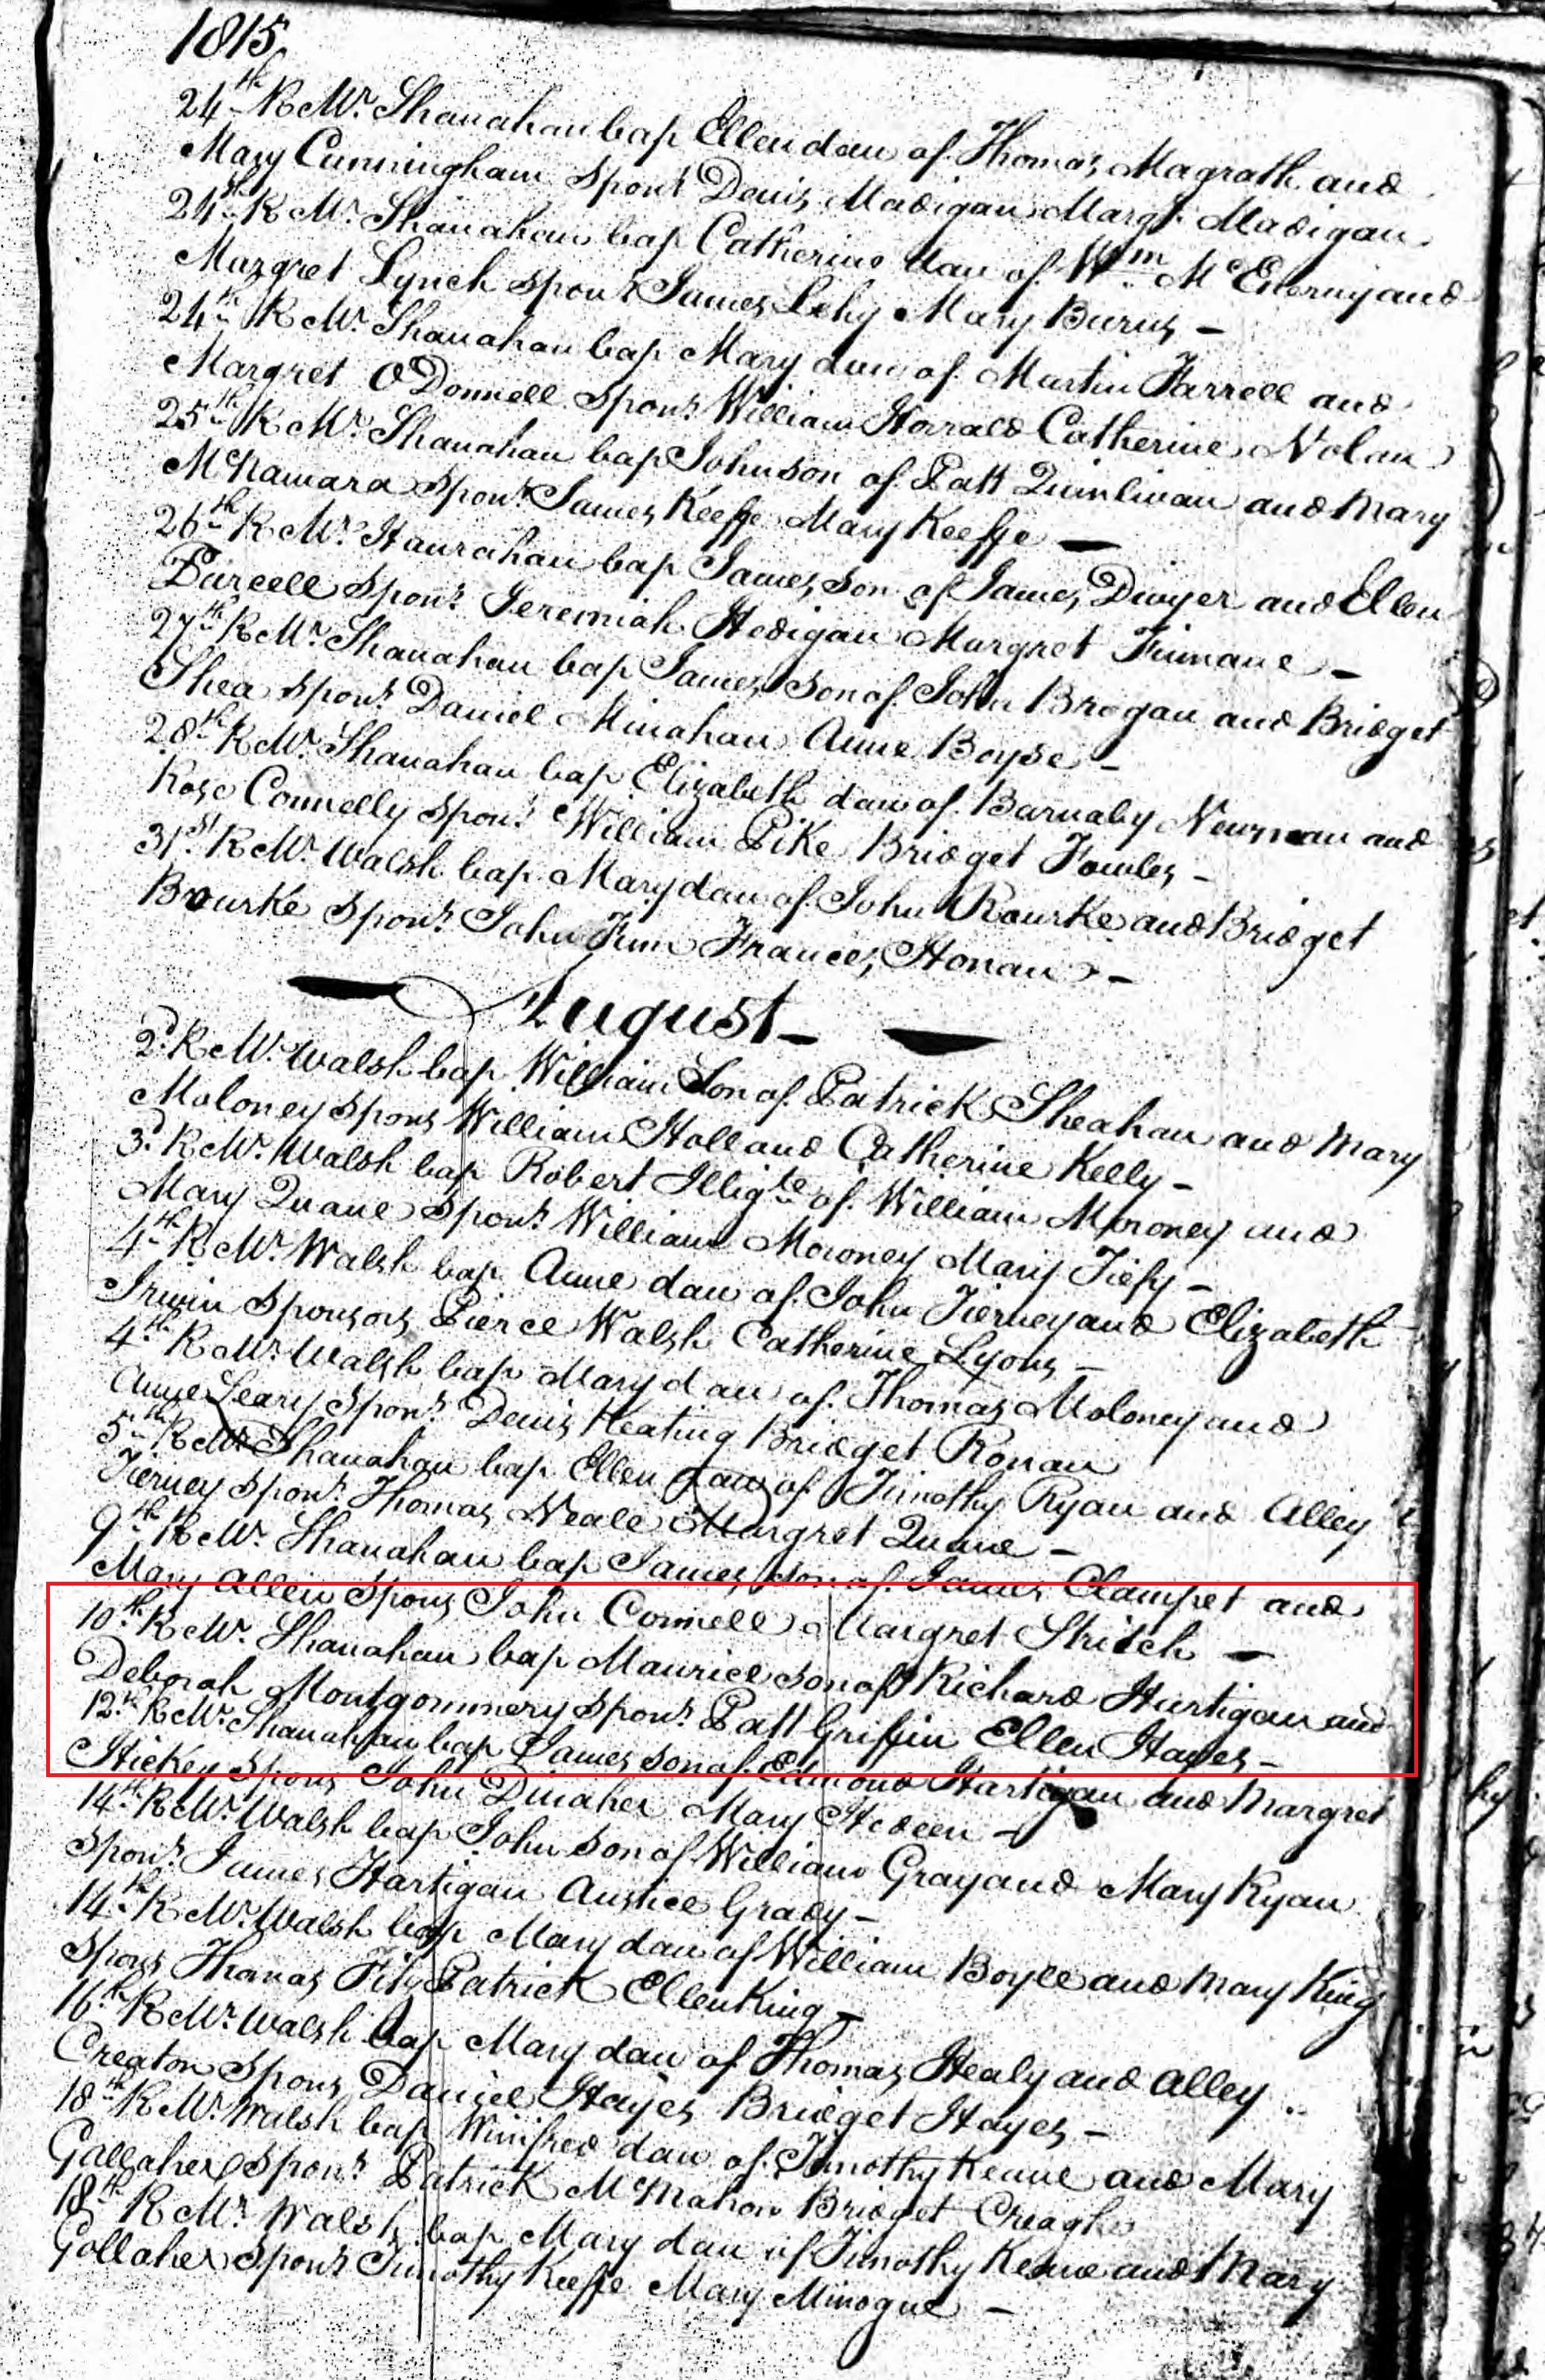 1815.
24th R. Mr. Shanahan bap Ellen dau of Thomas Magrath and
Mary Cunningham Spons Denis Madigan Margt. Madigan.
24th R Mr. Shanahan bap Catherine dau of Wm. McEnerny and
Margret Lynch Spons James Lehy Mary Burns -
24th R Mr. Shanahan bap Mary dau of Martin Farrell and
Margret O'Donnell Spons William Horrald Catherine Nolan
25th R Mr. Shanahan bap John son of Patt Quinlivan and Mary
McNamara Spons James Keeffe Mary Keeffe -
26th R Mr. Hanrahan bap James son of James Dwyer and Ellen
Purcell Spons Jeremiah Hedigan Margret Finnane -
27th R Mr. Shanahan bap James son of John Brogan and Bridget
Shea Spons Daniel Minahan Anne Boyse -
28th R Mr. Shanahan bap Elizabeth dau of Barnaby Newman and
Rose Connelly Spons William Pike Bridget Fowles -
31st R Mr. Walsh bap Mary dau of John Rourke and Bridget
Bourke Spons John Finn Frances Honan -
August -
2d R Mr. Walsh bap William Son of Patrick Sheahan and Mary
Moloney Spons William Holland Catherine Kelly -
3d R Mr. Walsh bap Robert Illigte of William Moroney and
Mary Quane Spons William Moroney Mary
4th R Mr. Walsh bap Anne dau of John Tierney and Elizabeth
Irwin Sponsors Pierce Walsh Catherine Lyons -
4th R Mr. Walsh bap Mary dau of Thomas Moloney and
Anne Leary Spons Denis Keating Bridget Ronan
5th R Mr Shanahan bap Ellen Dau of Timothy Ryan and Alley
Tierney Spons Thomas Neale Margret Quane -
9th R Mr. Shanahan bap James son of James Clampet and
Mary Allen Spons John Connell Margret Stritch -
10th R Mr. Shanahan bap Maurice son of Richard Hartigan and
Deborah Montgommery Spons Patt Griffin Ellen Hayes -
12th R Mr. Shanahan bap James son of Edmond Hartigan and Margret
Hickey Spons John Dinaher Mary Hedeen -
14th R Mr. Walsh bap John son of William Gray and Mary Ryan
Spons James Hartigan Anstice Grady -
14th R Mr. Walsh bap Mary dau of William Boyle and Mary King
Spons Thomas FitzPatrick Ellen King -
16th R Mr. Walsh bap Mary dau of Thomas Healy and Alley
Creaton Spons Daniel Hayes Bridget Hayes -
18th R Mr. Walsh bap Winifred dau of Timothy Keane and Mary
Gallaher Spons Patrick McMahon Bridget Creagh
18th R Mr. Walsh bap Mary dau of Timothy Keane and Mary
Gollaher Spons Timothy Keeffe Mary Minogue -